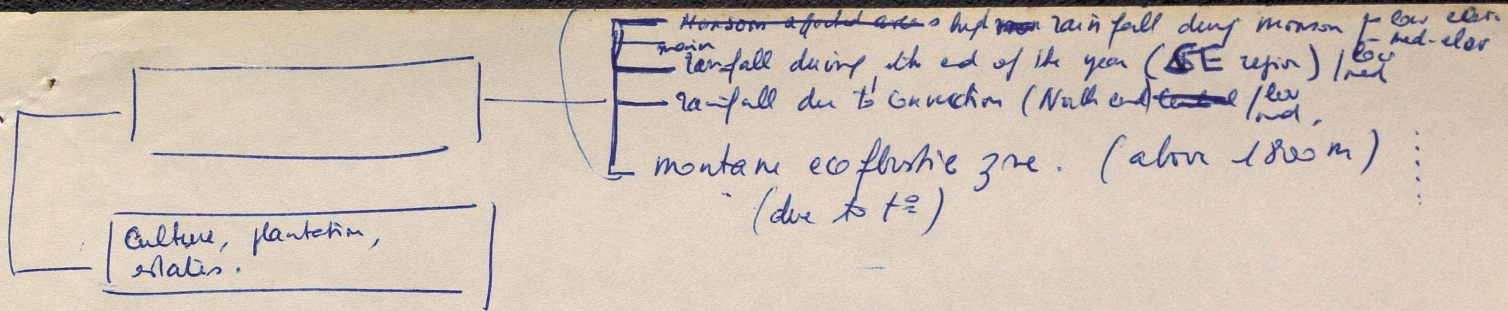 high rainfall during monsoon low elev.
med-elev
main
rainfall during the end of the year (SE region) / low
med
rainfall due to convection (North end / low
med.
montane ecofloristic zone. (above 1800 m)
(due to t°)
Culture, plantation,
estates.